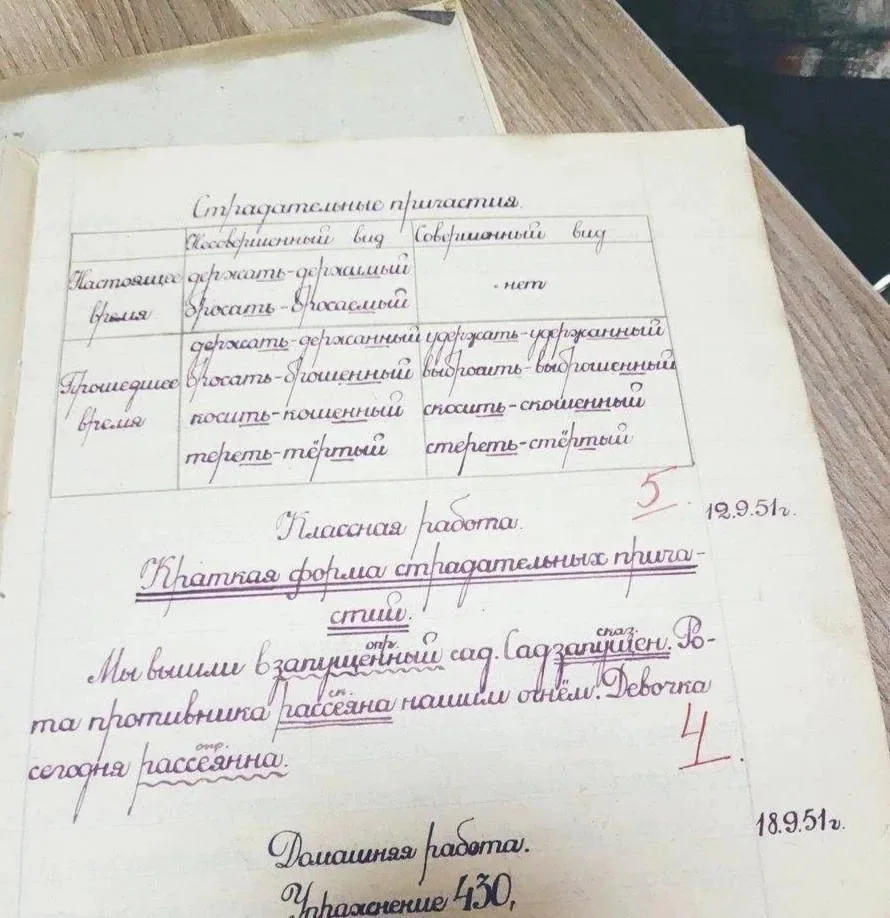 Страдательные причастия.
Несовершенный вид Совершенный вид
Настоящее время держать-держимый нет
бросать-бросаемый
Прошедшее время держать-держанный удержать-удержанный
бросать-брошенный выбросить-выброшенный
косить-кошенный скосить-скошенный
тереть-тёртый стереть-стёртый
5
12.9.51г.
Классная работа.
Краткая форма страдательных прича-
стий.
опр. сказ.
Мы вышли в запущенный сад. Сад запущен. Ро-
ск.
та противника рассеяна нашим огнём. Девочка
опр.
сегодня рассеянна.
4
18.9.51г.
Домашняя работа.
Упражнение 430,